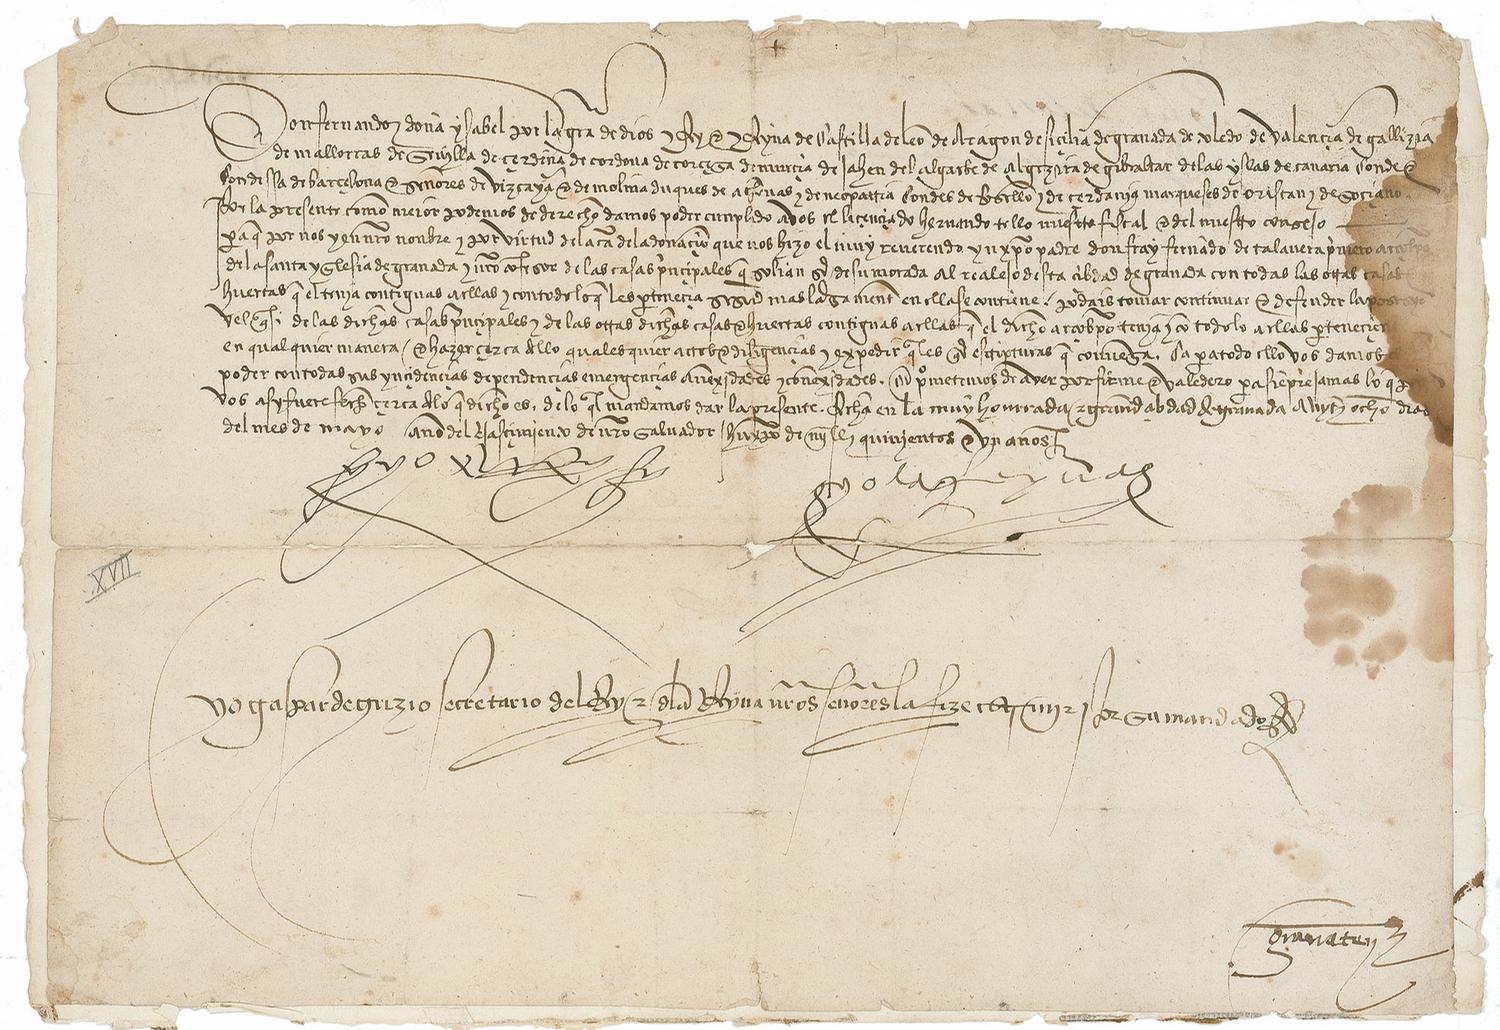 Don fernando z doña ysabel por la gra de dios Rey & Reyna de Castilla de leo de Aragon de sicilia de granada de toledo de valençia de gallizia
de mallorcas de Seuilla de çerdeña de cordoua de corçega de murçia de Jahen del algarbe de Algezira de gibraltar de las yslas de canaria Conde &
Condessa de barçelona & señores de vizcaya & de molina duques de athenas z de neopatria Condes de Rosello z de çerdania marqueses de oristan z de goçiano
Por la presente como meior podemos de derecho damos poder cumplido a vos el liçençiado hernando tello nuestro fiscal & del nuestro consejo
pa q por nos y en nro nonbre z por virtud de la ca de la donaçion que nos hizo el muy reuerendo yn xpo padre don fray fernando de talauera primero arcobpo
de la santa yglesia de granada z nro cofesor de las casas prinçipales q solian ser de su morada al realejo desta çibdad de granada con todas las otras casas
huertas q el tenia contiguas a ellas z con todo lo q les pteneçia segud mas largament en ella se contiene. podais tomar continuar & defender la posesyo
vel q¡ de las dichas casas prinçipales z de las otras dichas casas & huertas contiguas a ellas q el dicho arcobpo tenia z co todo lo a ellas perteneçien
en qualquier manera / & hazer çerca dello quales quier actos & diligençias z expedir q les qer escripturas q conuenga. Ca pa todo ello vos damos
poder con todas sus ynçidençias dependençias emergençias anexidades z conexidades. & prometemos de aver por firme & valedero pa siepre jamas lo q por
vos asy fuere fecho çerca dlo q dicho es. de lo q l mandamos dar la presente. fecha en la muy honrrada z grand çibdad de granada a veynt z ocho dias
del mes de mayo año del nasçimiento de nro saluador ihu xpo de mill z quinientos & vn años
yo el Rey
yo la Reyna
XVII
yo gaspar de grizio secretario del Rey z dla Reyna nros señores la fize escreuir por su mandado
granaten